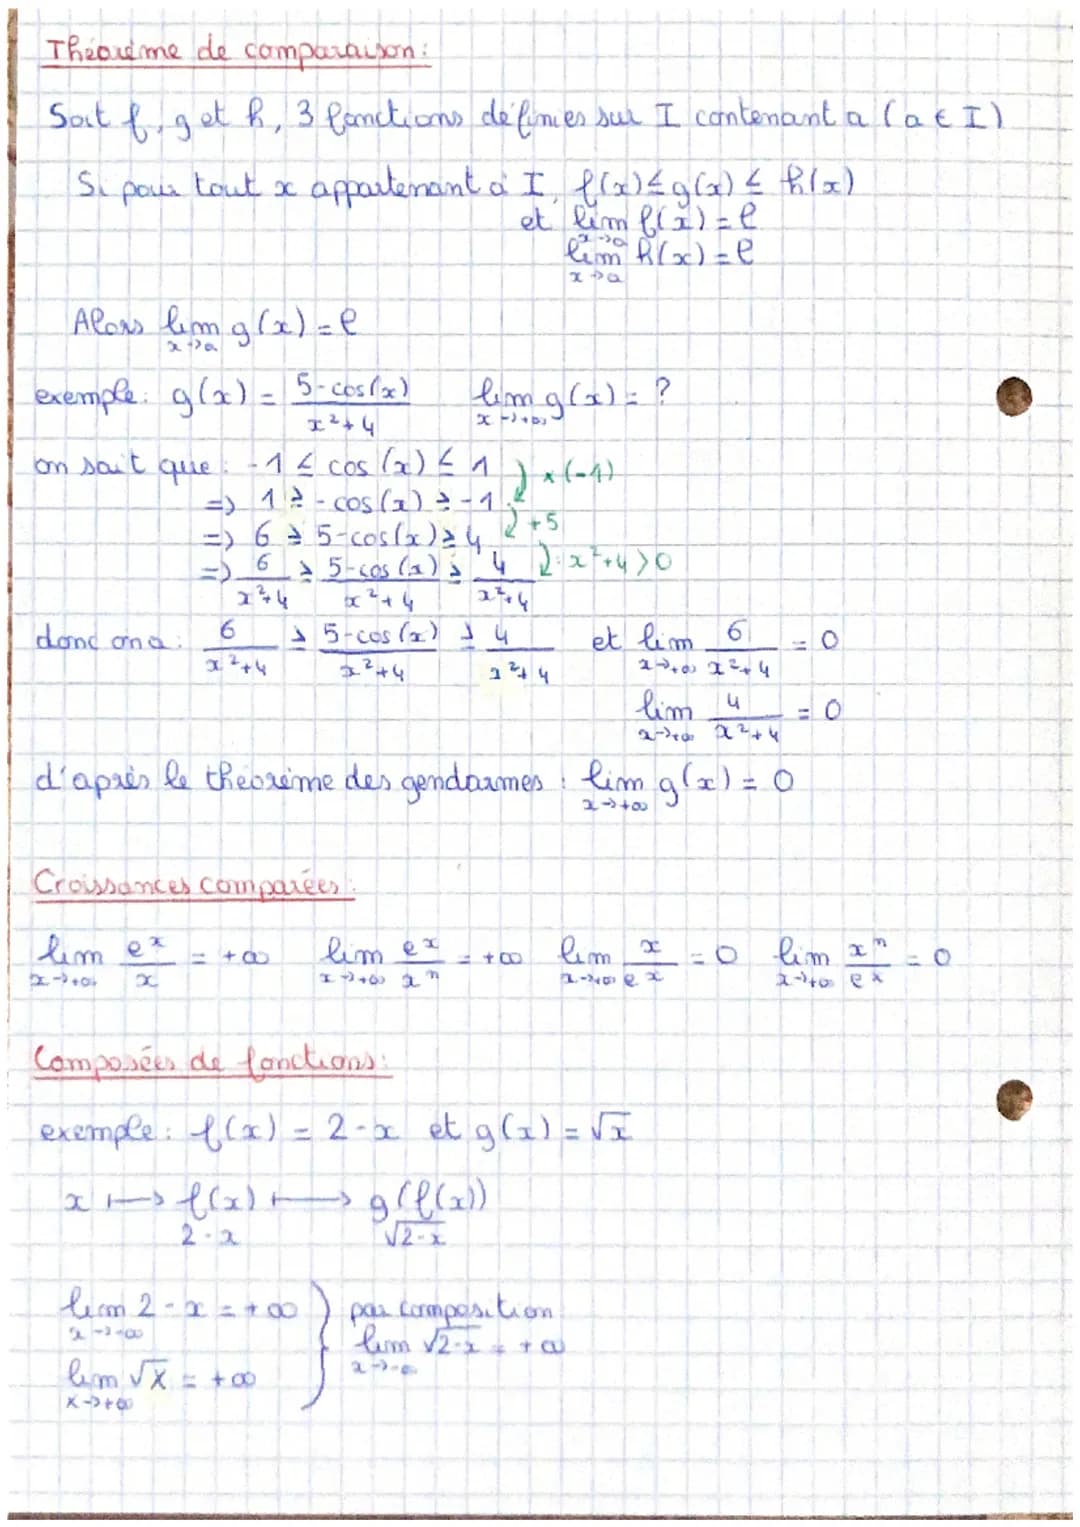 Théorème de comparaison :
Soit f, g et h, 3 fonctions définies sur I contenant a (a ∈ I)
Si pour tout x appartenant à I, f(x) ≤ g(x) ≤ h(x)
et lim f(x) = l
x→a
lim h(x) = l
x→a
Alors lim g(x) = l
x→a
exemple : g(x) = (5-cos(x))/(x²+4) lim g(x) = ?
x→+∞
on sait que : -1 ≤ cos(x) ≤ 1 ×(-1)
=> 1 ≥ -cos(x) ≥ -1 +5
=> 6 ≥ 5-cos(x) ≥ 4 : x²+4 > 0
=> 6/(x²+4) ≥ (5-cos(x))/(x²+4) ≥ 4/(x²+4)
donc on a : 6/(x²+4) ≥ (5-cos(x))/(x²+4) ≥ 4/(x²+4) et lim 6/(x²+4) = 0
x→+∞
lim 4/(x²+4) = 0
x→+∞
d'après le théorème des gendarmes : lim g(x) = 0
x→+∞
Croissances comparées :
lim eˣ/x = +∞ lim eˣ/xⁿ = +∞ lim x/eˣ = 0 lim xⁿ/eˣ = 0
x→+∞ x→+∞ x→+∞ x→+∞
Composées de fonctions :
exemple : f(x) = 2-x et g(x) = √x
x ⟼ f(x) ⟼ g(f(x))
2-x √2-x
lim 2-x = +∞ } par composition
x→-∞ lim √2-x = +∞
lim √X = +∞ x→-∞
X→+∞